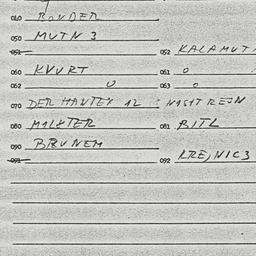 040 BONDER
050 MUTN 3
051 052 KALAMUT
060 KVURT 061 O
062 U 063 O
070 DER HANTEY 12 NAST REJN
080 MALSTER 081 BITL
090 BRUNEM
091 092 KREJNIC3